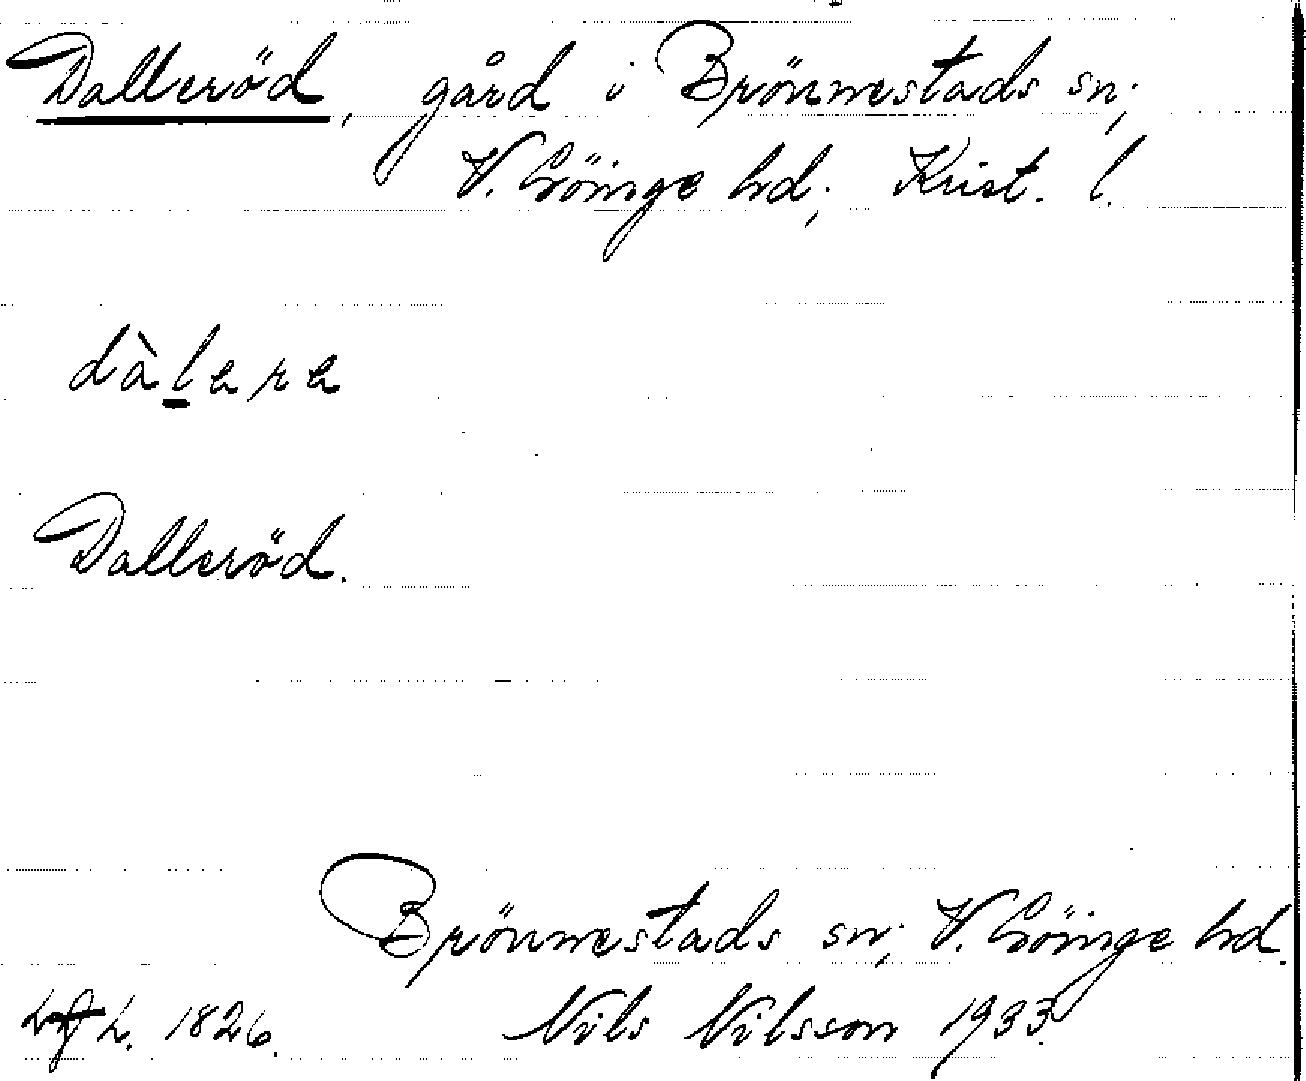 Dalleröd, gård i Brönnestads sn;
V. Göinge hd; Krist. l.
dàlere
Dalleröd.
Brönnestads sn; V. Göinge hd.
h. 1826. Nils Nilsson 1933.